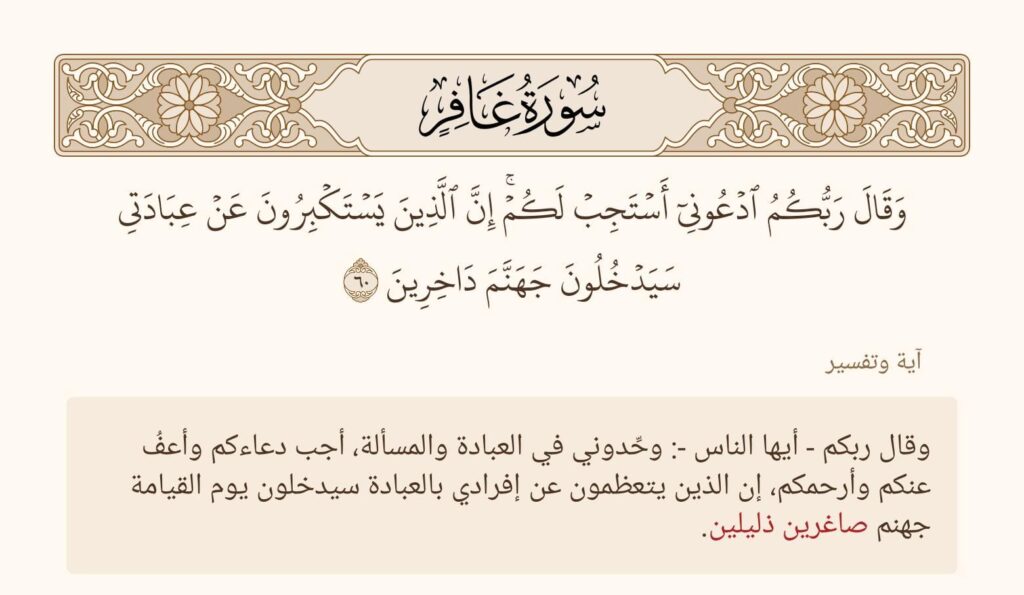 سُورَةُ غَافِرٍ
وَقَالَ رَبُّكُمُ ٱدۡعُونِيٓ أَسۡتَجِبۡ لَكُمۡۚ إِنَّ ٱلَّذِينَ يَسۡتَكۡبِرُونَ عَنۡ عِبَادَتِي
سَيَدۡخُلُونَ جَهَنَّمَ دَاخِرِينَ ٦٠
آية وتفسير
وقال ربكم - أيها الناس -: وحِّدوني في العبادة والمسألة، أجب دعاءكم وأعفُ
عنكم وأرحمكم، إن الذين يتعظمون عن إفرادي بالعبادة سيدخلون يوم القيامة
جهنم صاغرين ذليلين.